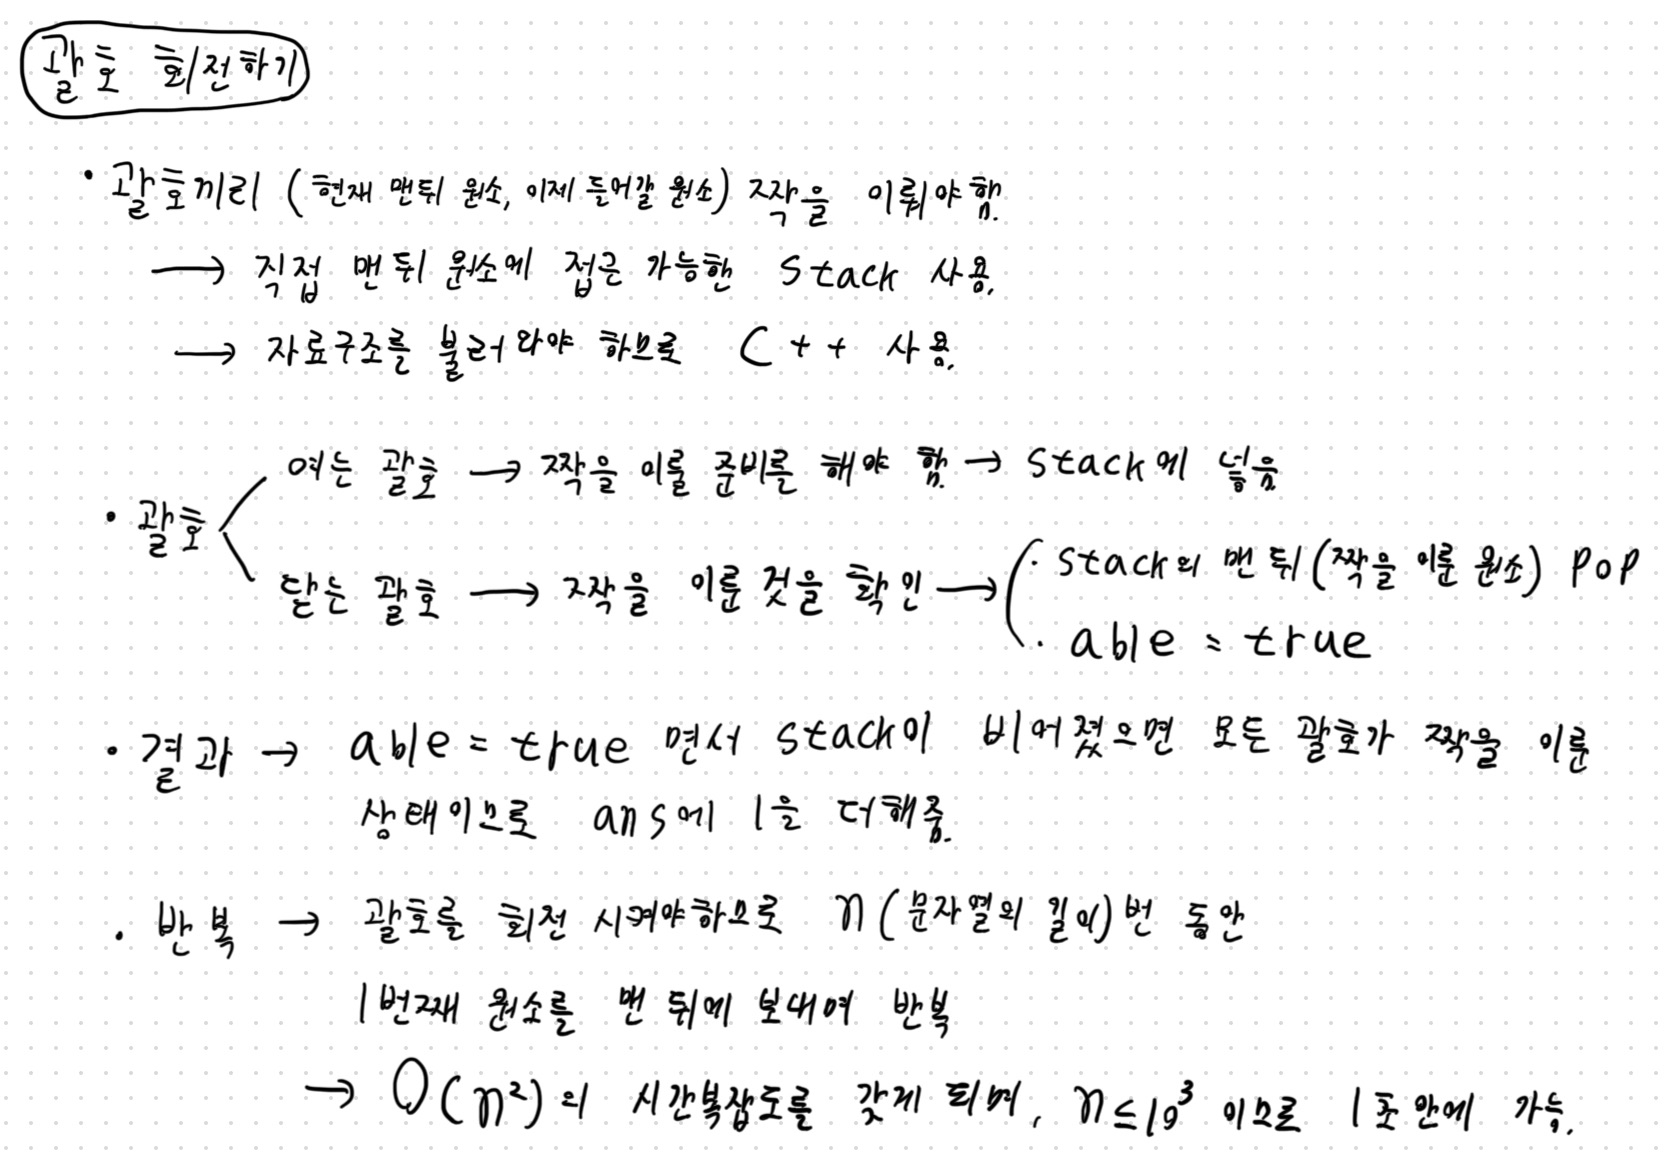 괄호 회전하기
· 괄호끼리 (현재 맨뒤 원소, 이제 들어갈 원소) 짝을 이뤄야 함.
→ 직접 맨 뒤 원소에 접근 가능한 stack 사용.
→ 자료구조를 불러와야 하므로 C++ 사용.
여는 괄호 → 짝을 이룰 준비를 해야 함. → stack에 넣음
· 괄호
닫는 괄호 → 짝을 이룬 것을 확인 → · stack의 맨 뒤(짝을 이룬 원소) pop
· able = true
· 결과 → able = true 면서 stack이 비어졌으면 모든 괄호가 짝을 이룬
상태이므로 ans에 1을 더해줌.
· 반복 → 괄호를 회전 시켜야하므로 n(문자열의 길이)번 동안
1번째 원소를 맨 뒤에 보내며 반복
→ O(n²)의 시간복잡도를 갖게 되며, n≤10³ 이므로 1초 안에 가능.